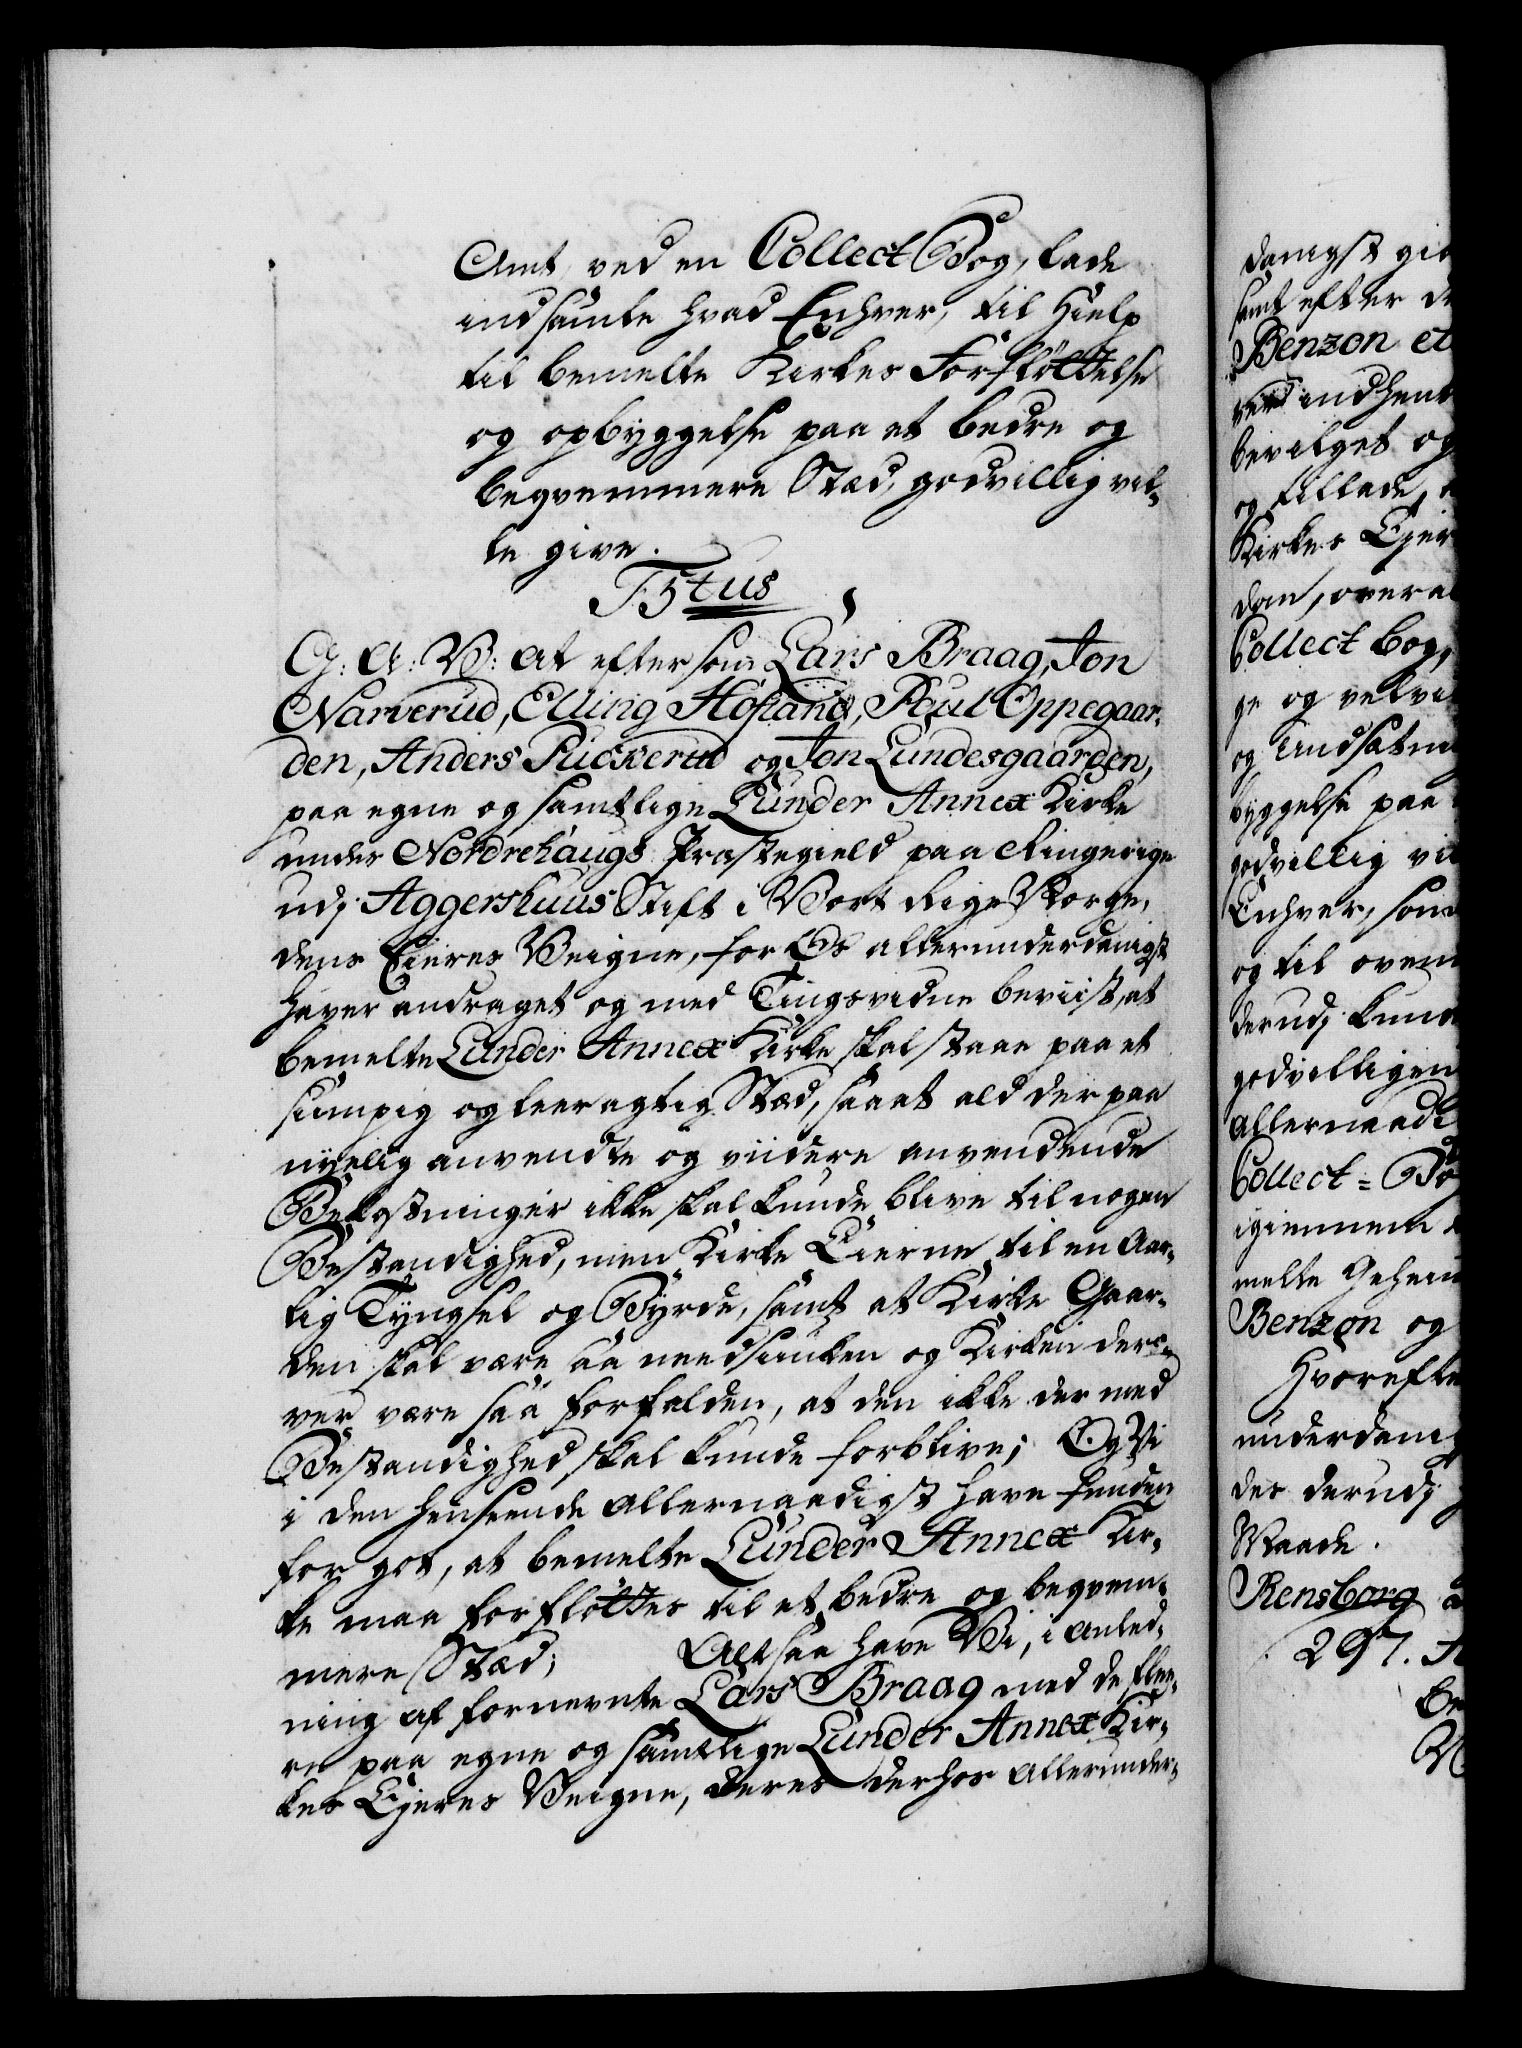 Amt, ved en Collect Bog, lade
indsamle hvad Enhver, til Hielp
til bemelte Kirkes Forfløttelse
og opbyggelse paa et bedre og
begvemmere Stæd, godvillig vil-
le give.
F5tus
G: A: V: At eftersom Lars Braag, Jon
Narverud, Elling Hofland, Poul Oppegaar-
den, Anders Puckerud og Jon Lundesgaarden,
paa egne og samtlige Lunder Annex Kirke
under Nordrehaugs Præstegield paa Ringerige
udj Aggershuus Stift i Vort Rige Norge,
dens Eieres Veigne, for Os allerunderdanigst
haver andraget og med Tingsvidne beviist, at
bemelte Lunder Annex Kirke skal staae paa et
sumpig og leeragtig Stæd, saa at ald derpaa
nyelig anvendte og viidere anvendende
Bekostninger ikke skal kunde blive til nogen
Bestandighed, men Kirke Eierne til en Aar-
lig Tyngsel og Byrde, samt at Kirke Gaar-
den skal være saa needsunken og Kirken der o-
ver være saa forfalden, at den ikke der med
Bestandighed skal kunde forblive; Og Vi
i den henseende allernaadigst have funden
for got, at bemelte Lunder Annex Kir-
ke maa forfløttes til et bedre og begvem-
mere Stæd; Altsaa have Vi, i anled-
ning af fornevnte Lars Braag med de flee-
re paa egne og samtlige Lunder Annex Kir-
kes Ejeres Veigne, deres derhos allerunder-
danigst
samt efter
Benzon et
indhent
bevilget og
og tillade,
Kirkes Ejer
dom, overal
Collect bog,
ge og velvil
og Undsætni
byggelse paa
godvillig vil
Enhver, som
og til oven
derudj kund
godvilligen
allernaadi
Collect-Bo
igiennem
melte Geheim
Benzon og
Hvorefte
underdanig
des derudj
Maade.
Rensborg
297.